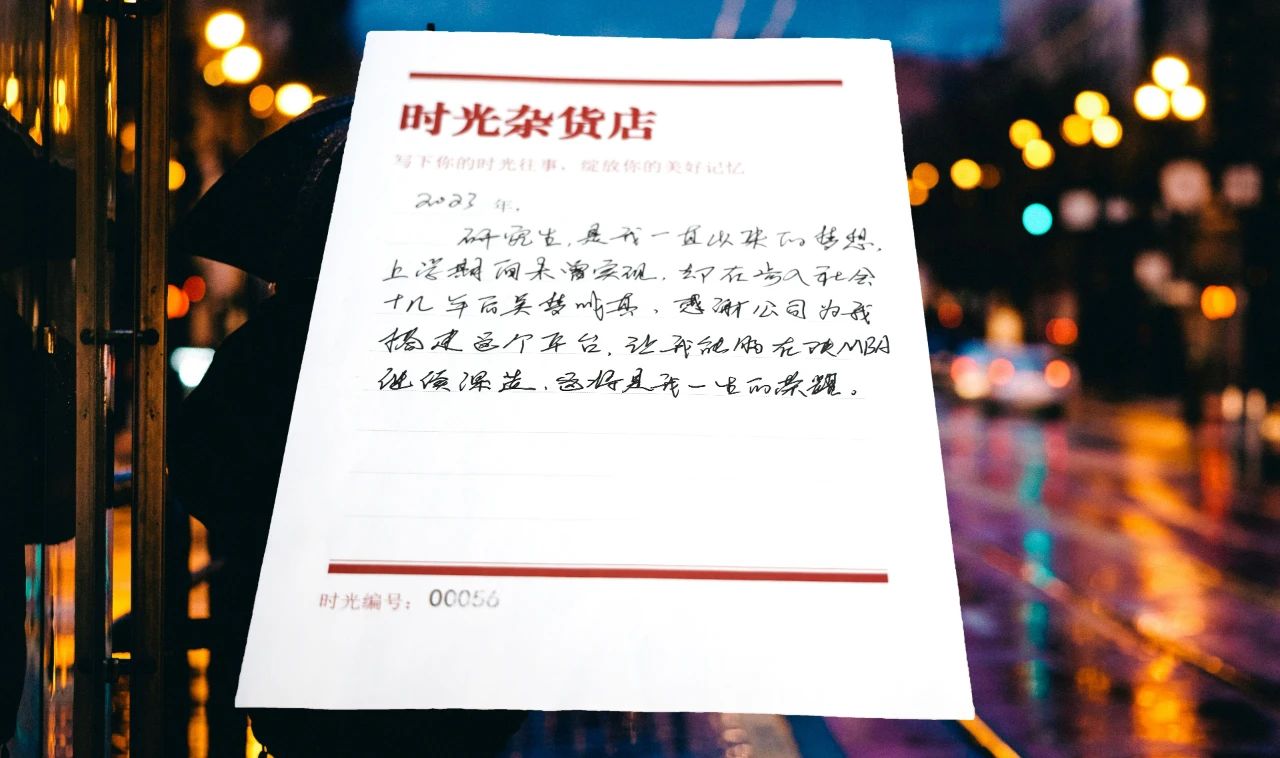 时光杂货店
写下你的时光往事，绽放你的美好记忆
2023 年.
研究生，是我一直以来的梦想，
上学期间未曾实现，却在步入社会
十几年后美梦成真，感谢公司为我
搭建这个平台，让我能够在读MBA
继续深造，这将是我一生的荣耀。
时光编号：00056